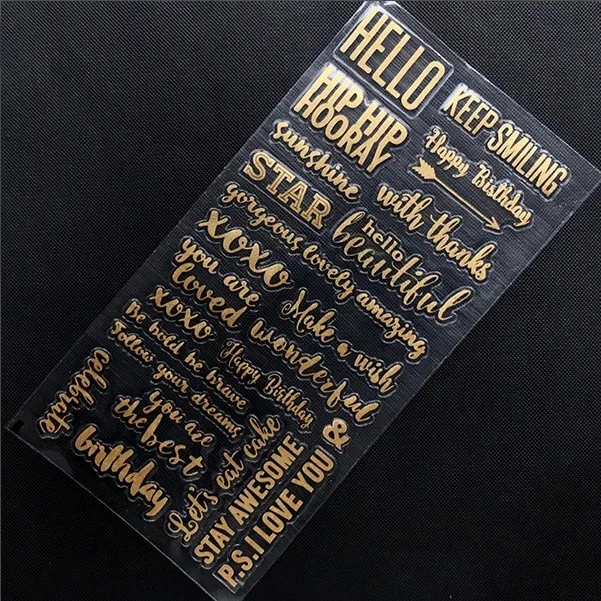 HELLO
HIP HIP
HOORAY
KEEP SMILING
Happy Birthday
sunshine
STAR
with thanks
hello
beautiful
gorgeous lovely amazing
xoxo
you are
loved
Make a wish
wonderful
xoxo
Be bold be brave
Follow your dreams
Happy Birthday
&
celebrate
you are
the best
birthday
Let's eat cake
STAY AWESOME
P.S. I LOVE YOU